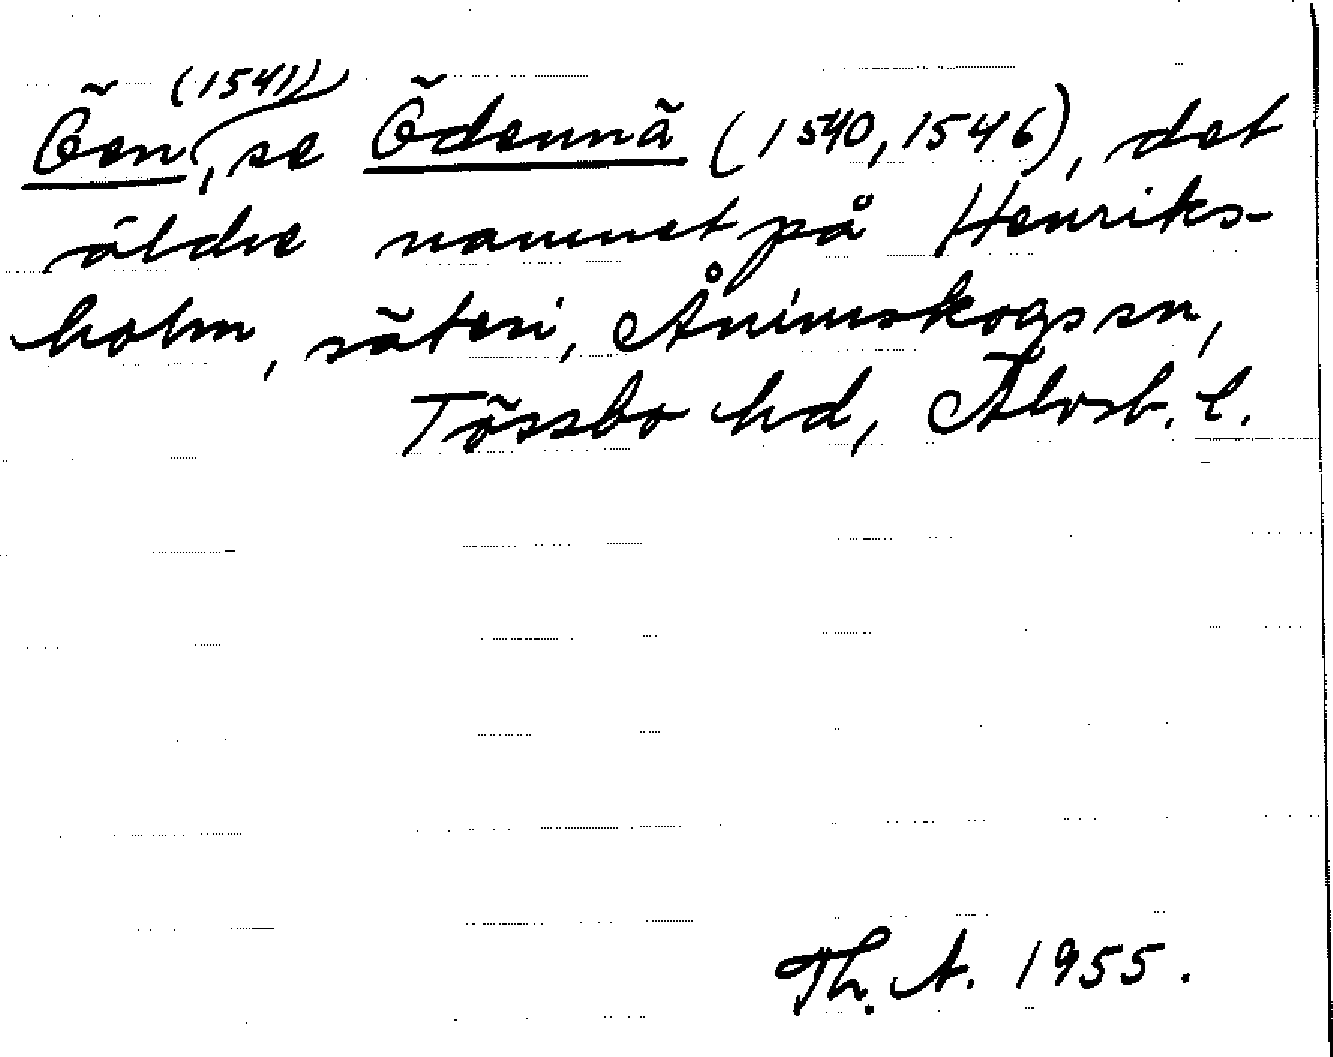 Öen (1541), se Ödennä (1540, 1546), det
äldre namnet på Henriks-
holm, säteri, Ånimskogs sn,
Tössbo hd, Älvsb. l.
Th. A. 1955.